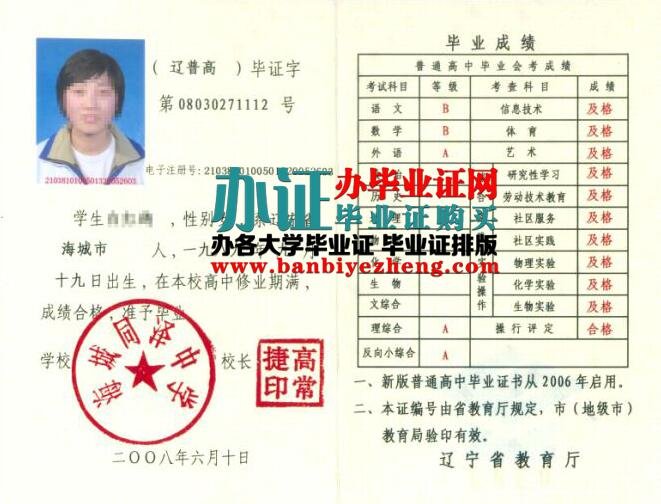 （辽普高　）毕证字
第 08030271112 号
电子注册号:
学生　　，性别　　系辽宁省
海城市　人，一九八　年　月
十九日出生，在本校高中修业期满，
成绩合格，准予毕业
学校　校长
海城同泽中学
高常捷印
二〇〇八年六月十日
办证
办毕业证网
毕业证购买
办各大学毕业证 毕业证排版
www.banbiyezheng.com
毕业成绩
普通高中毕业会考成绩
考试科目 等级 考查科目 成绩
语文 B 信息技术 及格
数学 B 体育 及格
外语 A 艺术 及格
治 研究性学习 及格
历 劳动技术教育 及格
理 社区服务 及格
物 社区实践 及格
化学 物理实验 及格
生物 化学实验 及格
文综合 生物实验 及格
实验操作
理综合 A 操行评定 合格
反向小综合 A
一、新版普通高中毕业证书从2006年启用。
二、本证编号由省教育厅规定，市（地级市）
教育局验印有效。
辽宁省教育厅